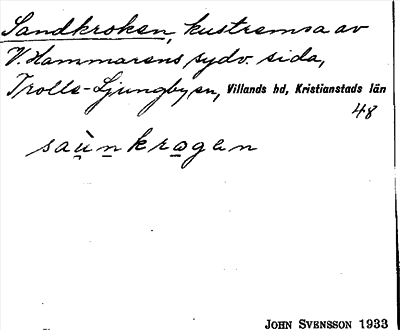 Sandkroken, kustremsa av
V. Hammarens sydv. sida,
Trolle-Ljungby sn, Villands hd, Kristianstads län
48
saùnkrogen
JOHN SVENSSON 1933